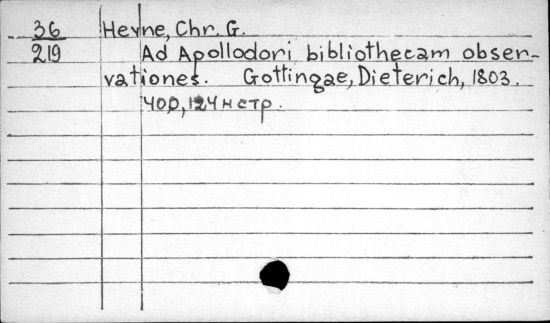 36 Heyne, Chr. G.
219 Ad Apollodori bibliothecam obser-
vationes. Gottingae, Dieterich, 1803.
400, 124 н стр.